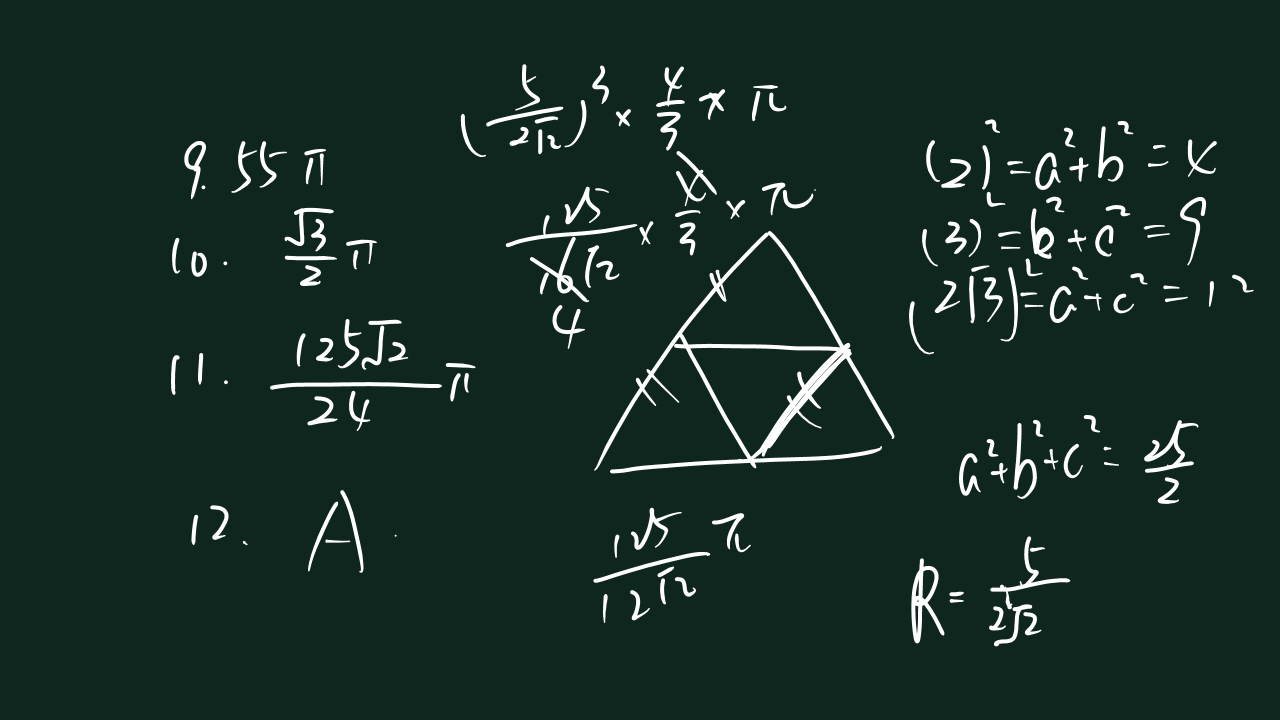 9. 55π
10. √3/2 π
11. 125√2/24 π
12. A.
(5/2√2)³ × 4/3 × π
125/16√2 × 4/3 × π
4
125/12√2 π
(2)² = a² + b² = 4
(3)² = b² + c² = 9
(2√3)² = a² + c² = 12
a² + b² + c² = 25/2
R = 5/2√2